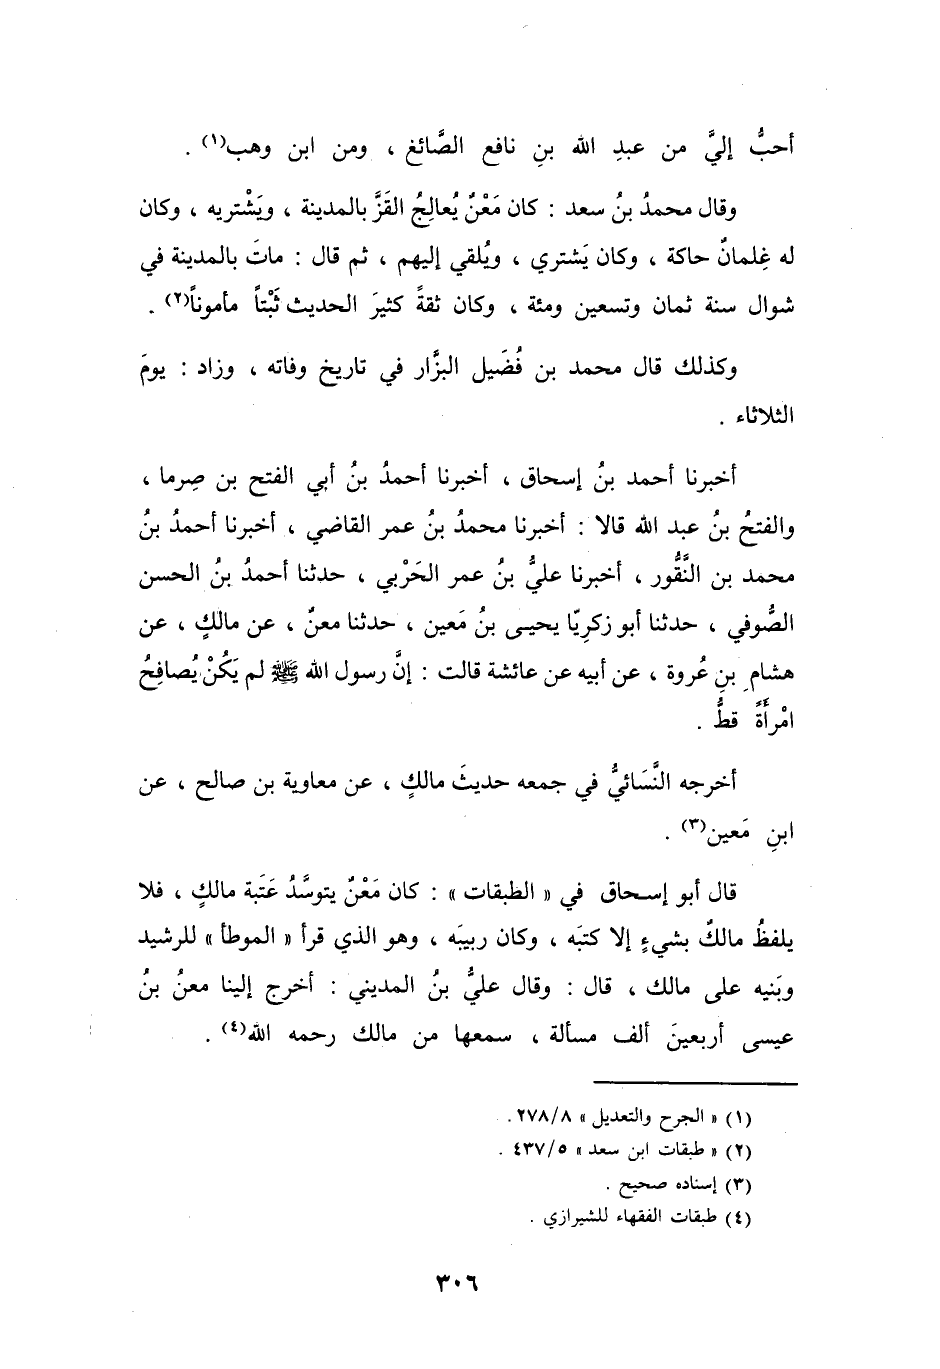 أحبُّ إليَّ من عبدِ الله بنِ نافع الصَّائغ ، ومن ابن وهب(١) .
وقال محمدُ بنُ سعد : كان مَعْنٌ يُعالِجُ القَزَّ بالمدينة ، ويَشْتريه ، وكان
له غِلمانٌ حاكة ، وكان يَشتري ، ويُلقي إليهم ، ثم قال : ماتَ بالمدينة في
شوال سنة ثمان وتسعين ومئة ، وكان ثقةً كثيرَ الحديث ثَبْتاً مأموناً(٢) .
وكذلك قال محمد بن فُضَيل البزَّار في تاريخ وفاته ، وزاد : يومَ
الثلاثاء .
أخبرنا أحمد بنُ إسحاق ، أخبرنا أحمدُ بنُ أبي الفتح بن صِرما ،
والفتحُ بنُ عبد الله قالا : أخبرنا محمدُ بنُ عمر القاضي ، أخبرنا أحمدُ بنُ
محمد بن النَّقُّور ، أخبرنا عليُّ بنُ عمر الحَرْبي ، حدثنا أحمدُ بنُ الحسن
الصُّوفي ، حدثنا أبو زكرِيّا يحيـى بنُ مَعين ، حدثنا معنٌ ، عن مالكٍ ، عن
هشامِ بنِ عُروة ، عن أبيه عن عائشة قالت : إنَّ رسول الله ﷺ لم يَكُنْ يُصافِحُ
امْرأَةً قطُّ .
أخرجه النَّسَائيُّ في جمعه حديثَ مالكٍ ، عن معاوية بن صالح ، عن
ابنِ مَعين(٣) .
قال أبو إسـحاق في « الطبقات » : كان مَعْنٌ يتوسَّدُ عَتَبة مالكٍ ، فلا
يلفظُ مالكٌ بشيءٍ إلا كتبَه ، وكان ربيبَه ، وهو الذي قرأ « الموطأ » للرشيد
وبَنيه على مالك ، قال : وقال عليُّ بنُ المديني : أخرج إلينا معنُ بنُ
عيسى أربعينَ ألف مسألة ، سمعها من مالك رحمه الله(٤) .
(١) « الجرح والتعديل » ٢٧٨/٨ .
(٢) « طبقات ابن سعد » ٤٣٧/٥ .
(٣) إسناده صحيح .
(٤) طبقات الفقهاء للشيرازي .
٣٠٦